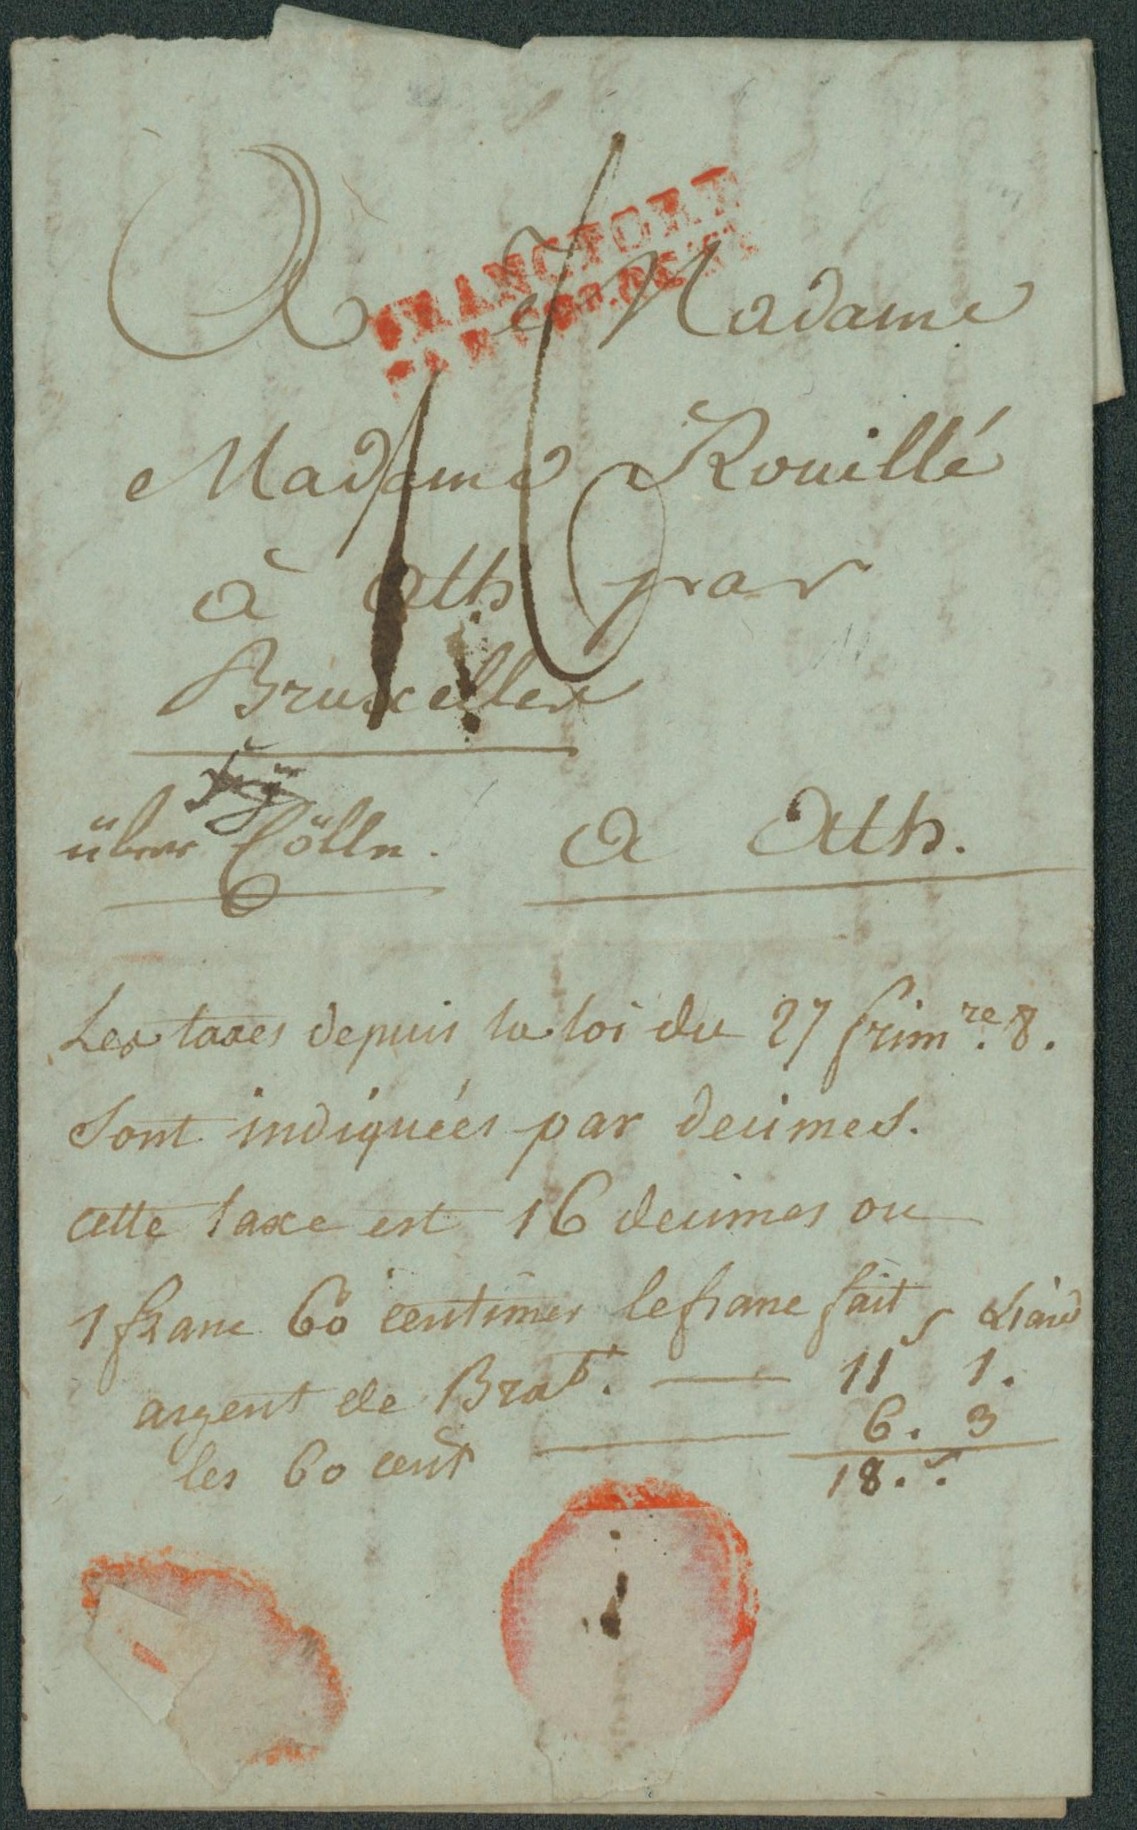 FRANCFORT
A Madame
16
Madame Rouillé
à Ath par
Bruxelles
über Cölln. a Ath.
Les taxes depuis la loi du 27 frim.re 8.
Sont indiquées par decimes.
cette taxe est 16 decimes ou
1 franc 60 centimes le franc fait s Liard
argent de Brab.t — 11 1.
les 60 cent — 6. 3
18. -.